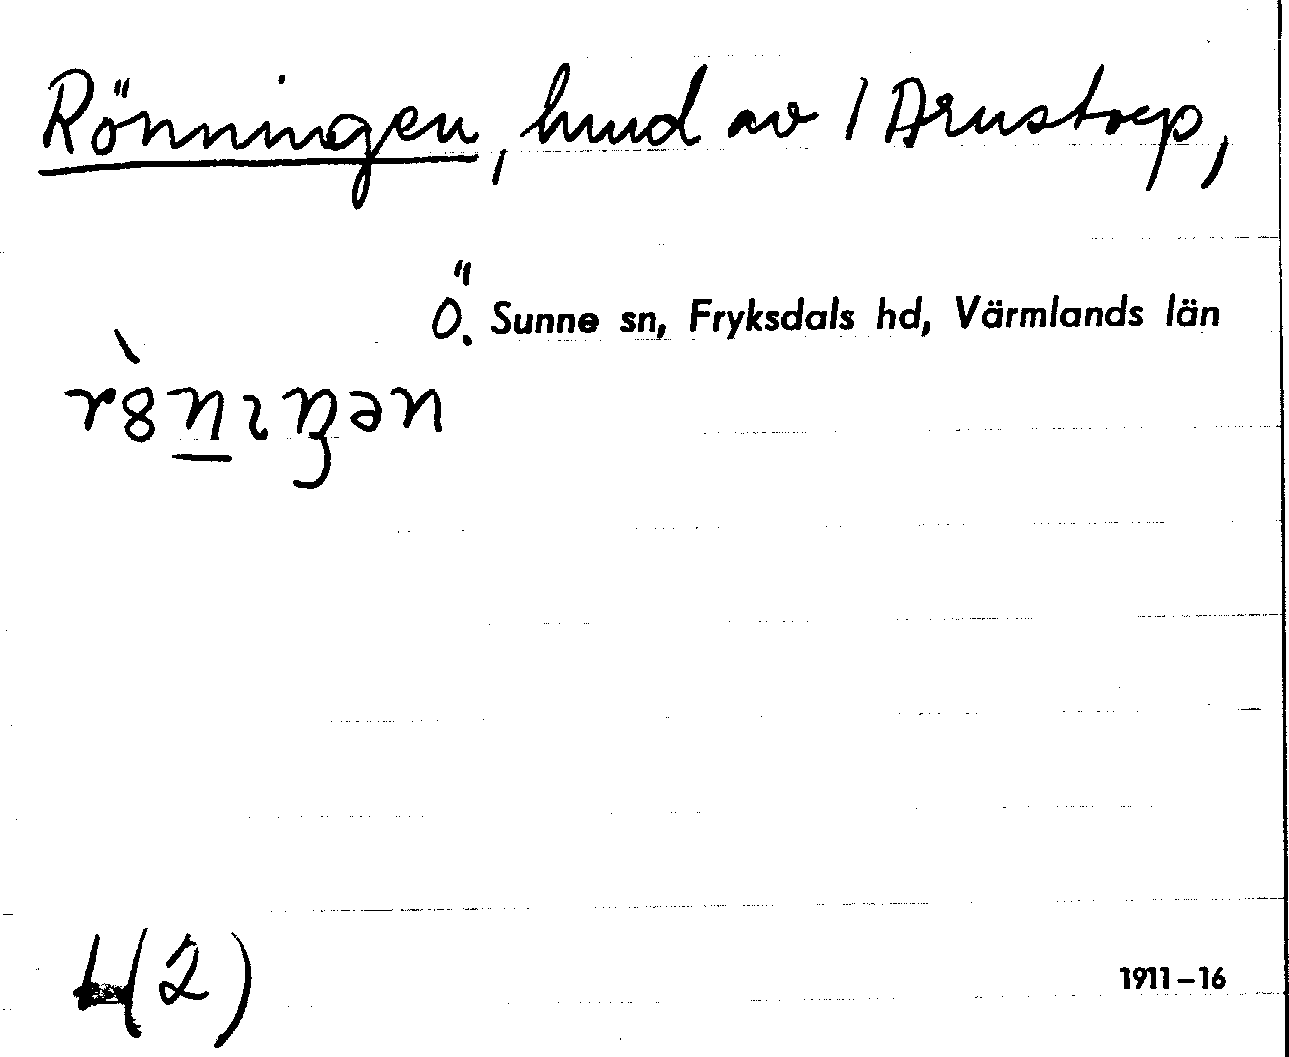 Rönningen, hmd av 1 Arnstorp,
Ö. Sunne sn, Fryksdals hd, Värmlands län
4(2)
1911–16